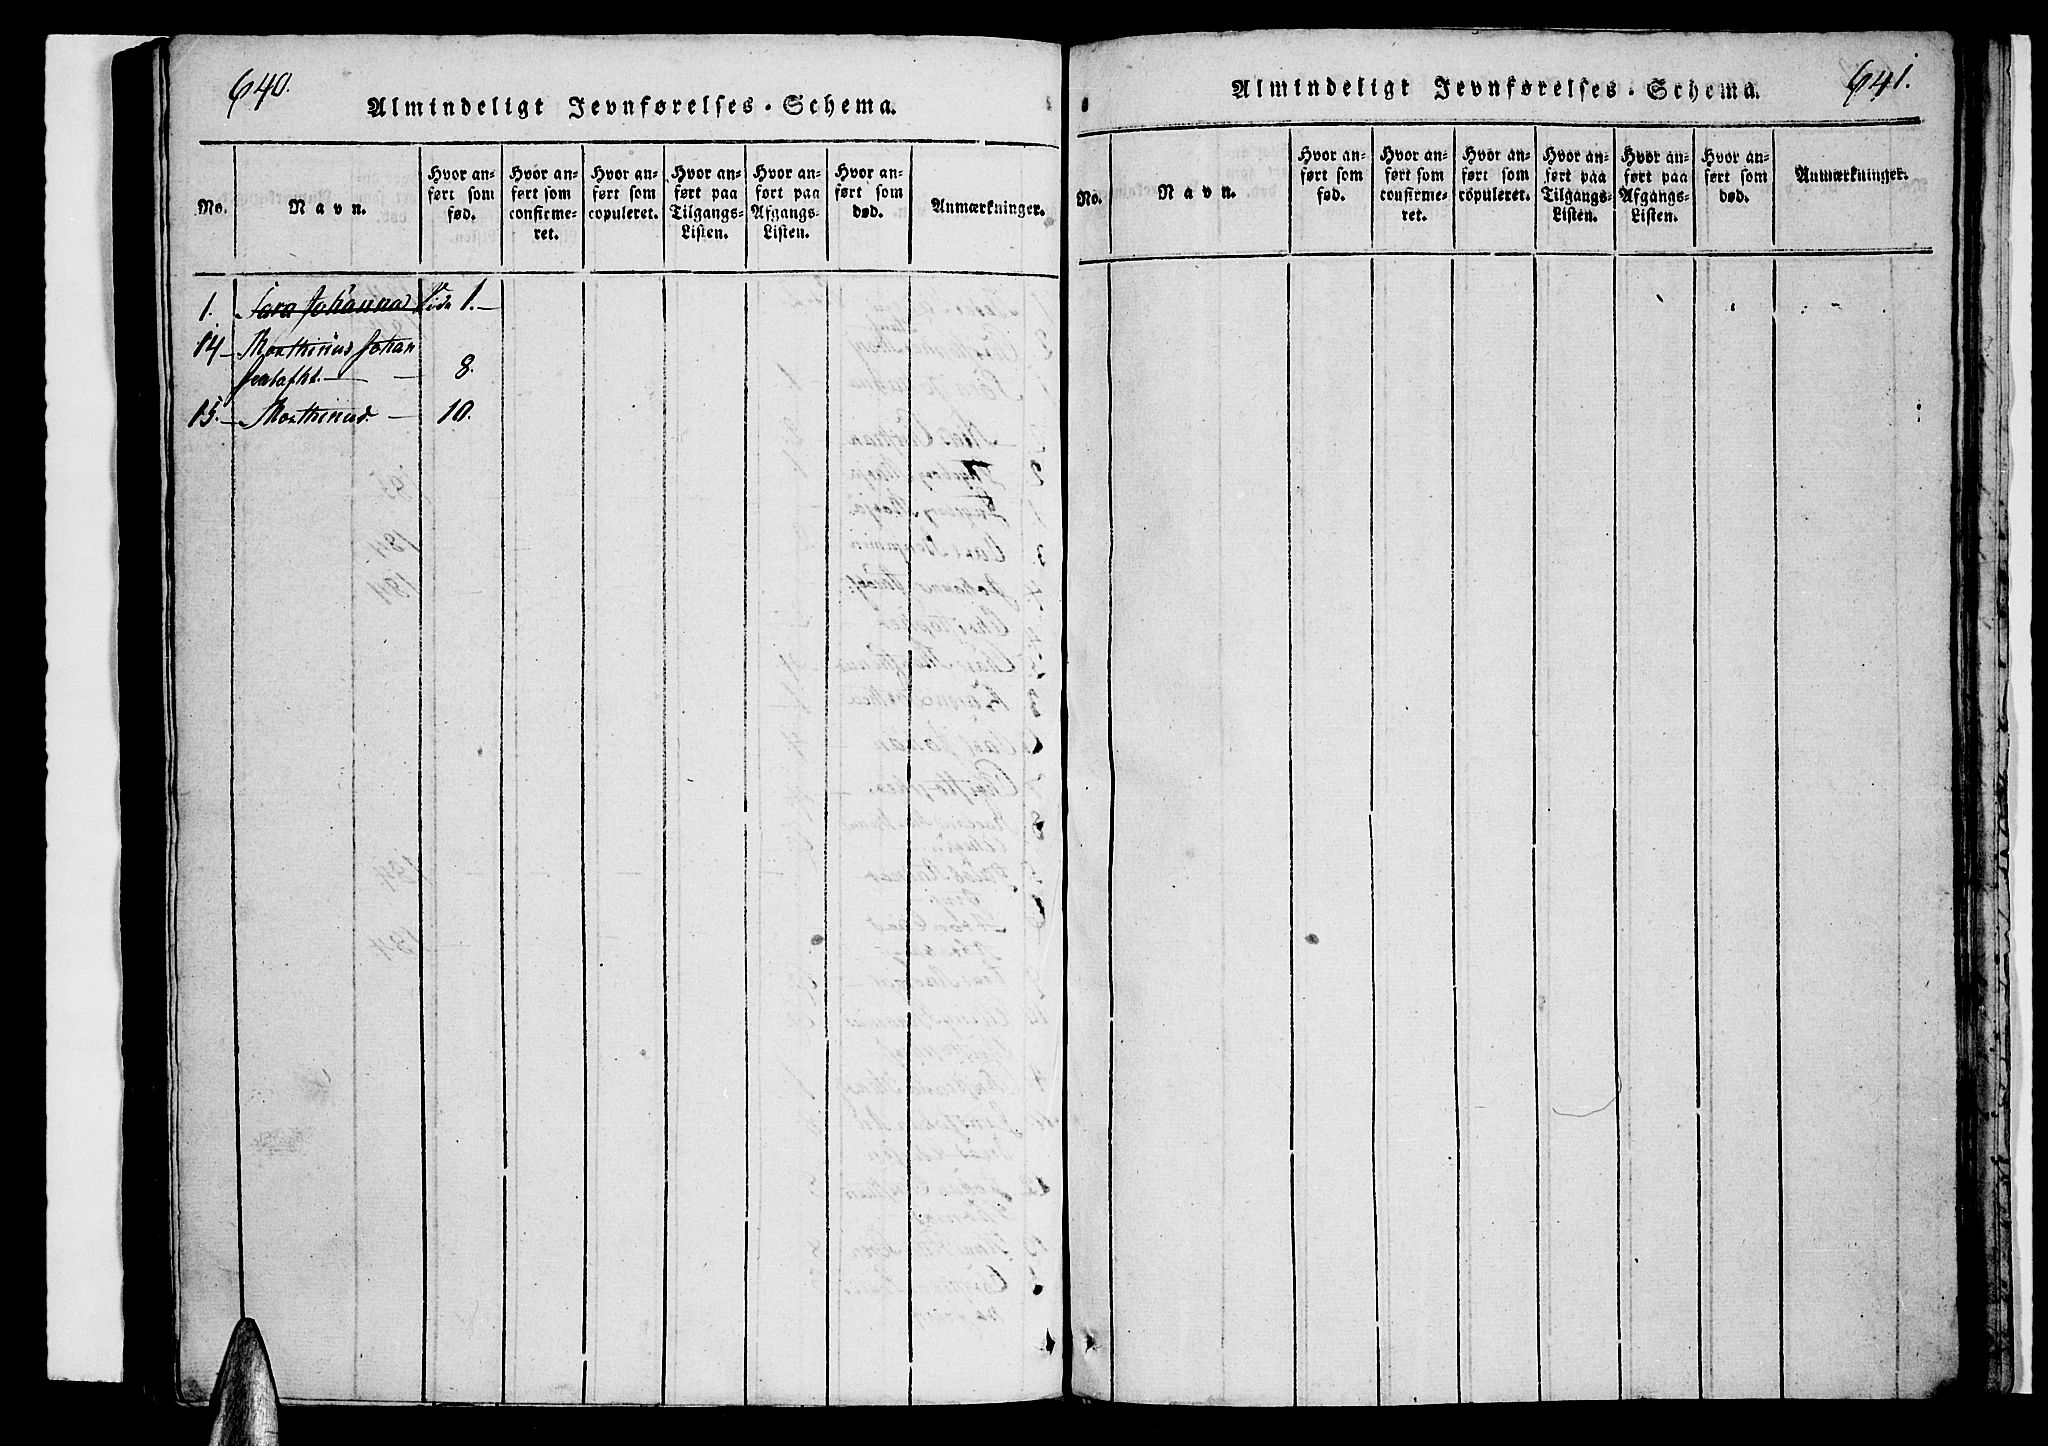 640.
Almindeligt Jevnførelses-Schema.
No.
Navn.
Hvor an-
ført som
fød.
Hvor an-
ført som
confirme-
ret.
Hvor an-
ført som
copuleret.
Hvor an-
ført paa
Tilgangs-
Listen.
Hvor an-
ført paa
Afgangs-
Listen.
Hvor an-
ført som
død.
Anmærkninger.
1. Sara Johanna Side 1.
14 Morthinus Johan
8.
15. Morthinus 10.
641.
Almindeligt Jevnførelses-Schema.
No.
Navn.
Hvor an-
ført som
fød.
Hvor an-
ført som
confirme-
ret.
Hvor an-
ført som
copuleret.
Hvor an-
ført paa
Tilgangs-
Listen.
Hvor an-
ført paa
Afgangs-
Listen.
Hvor an-
ført som
død.
Anmærkninger.